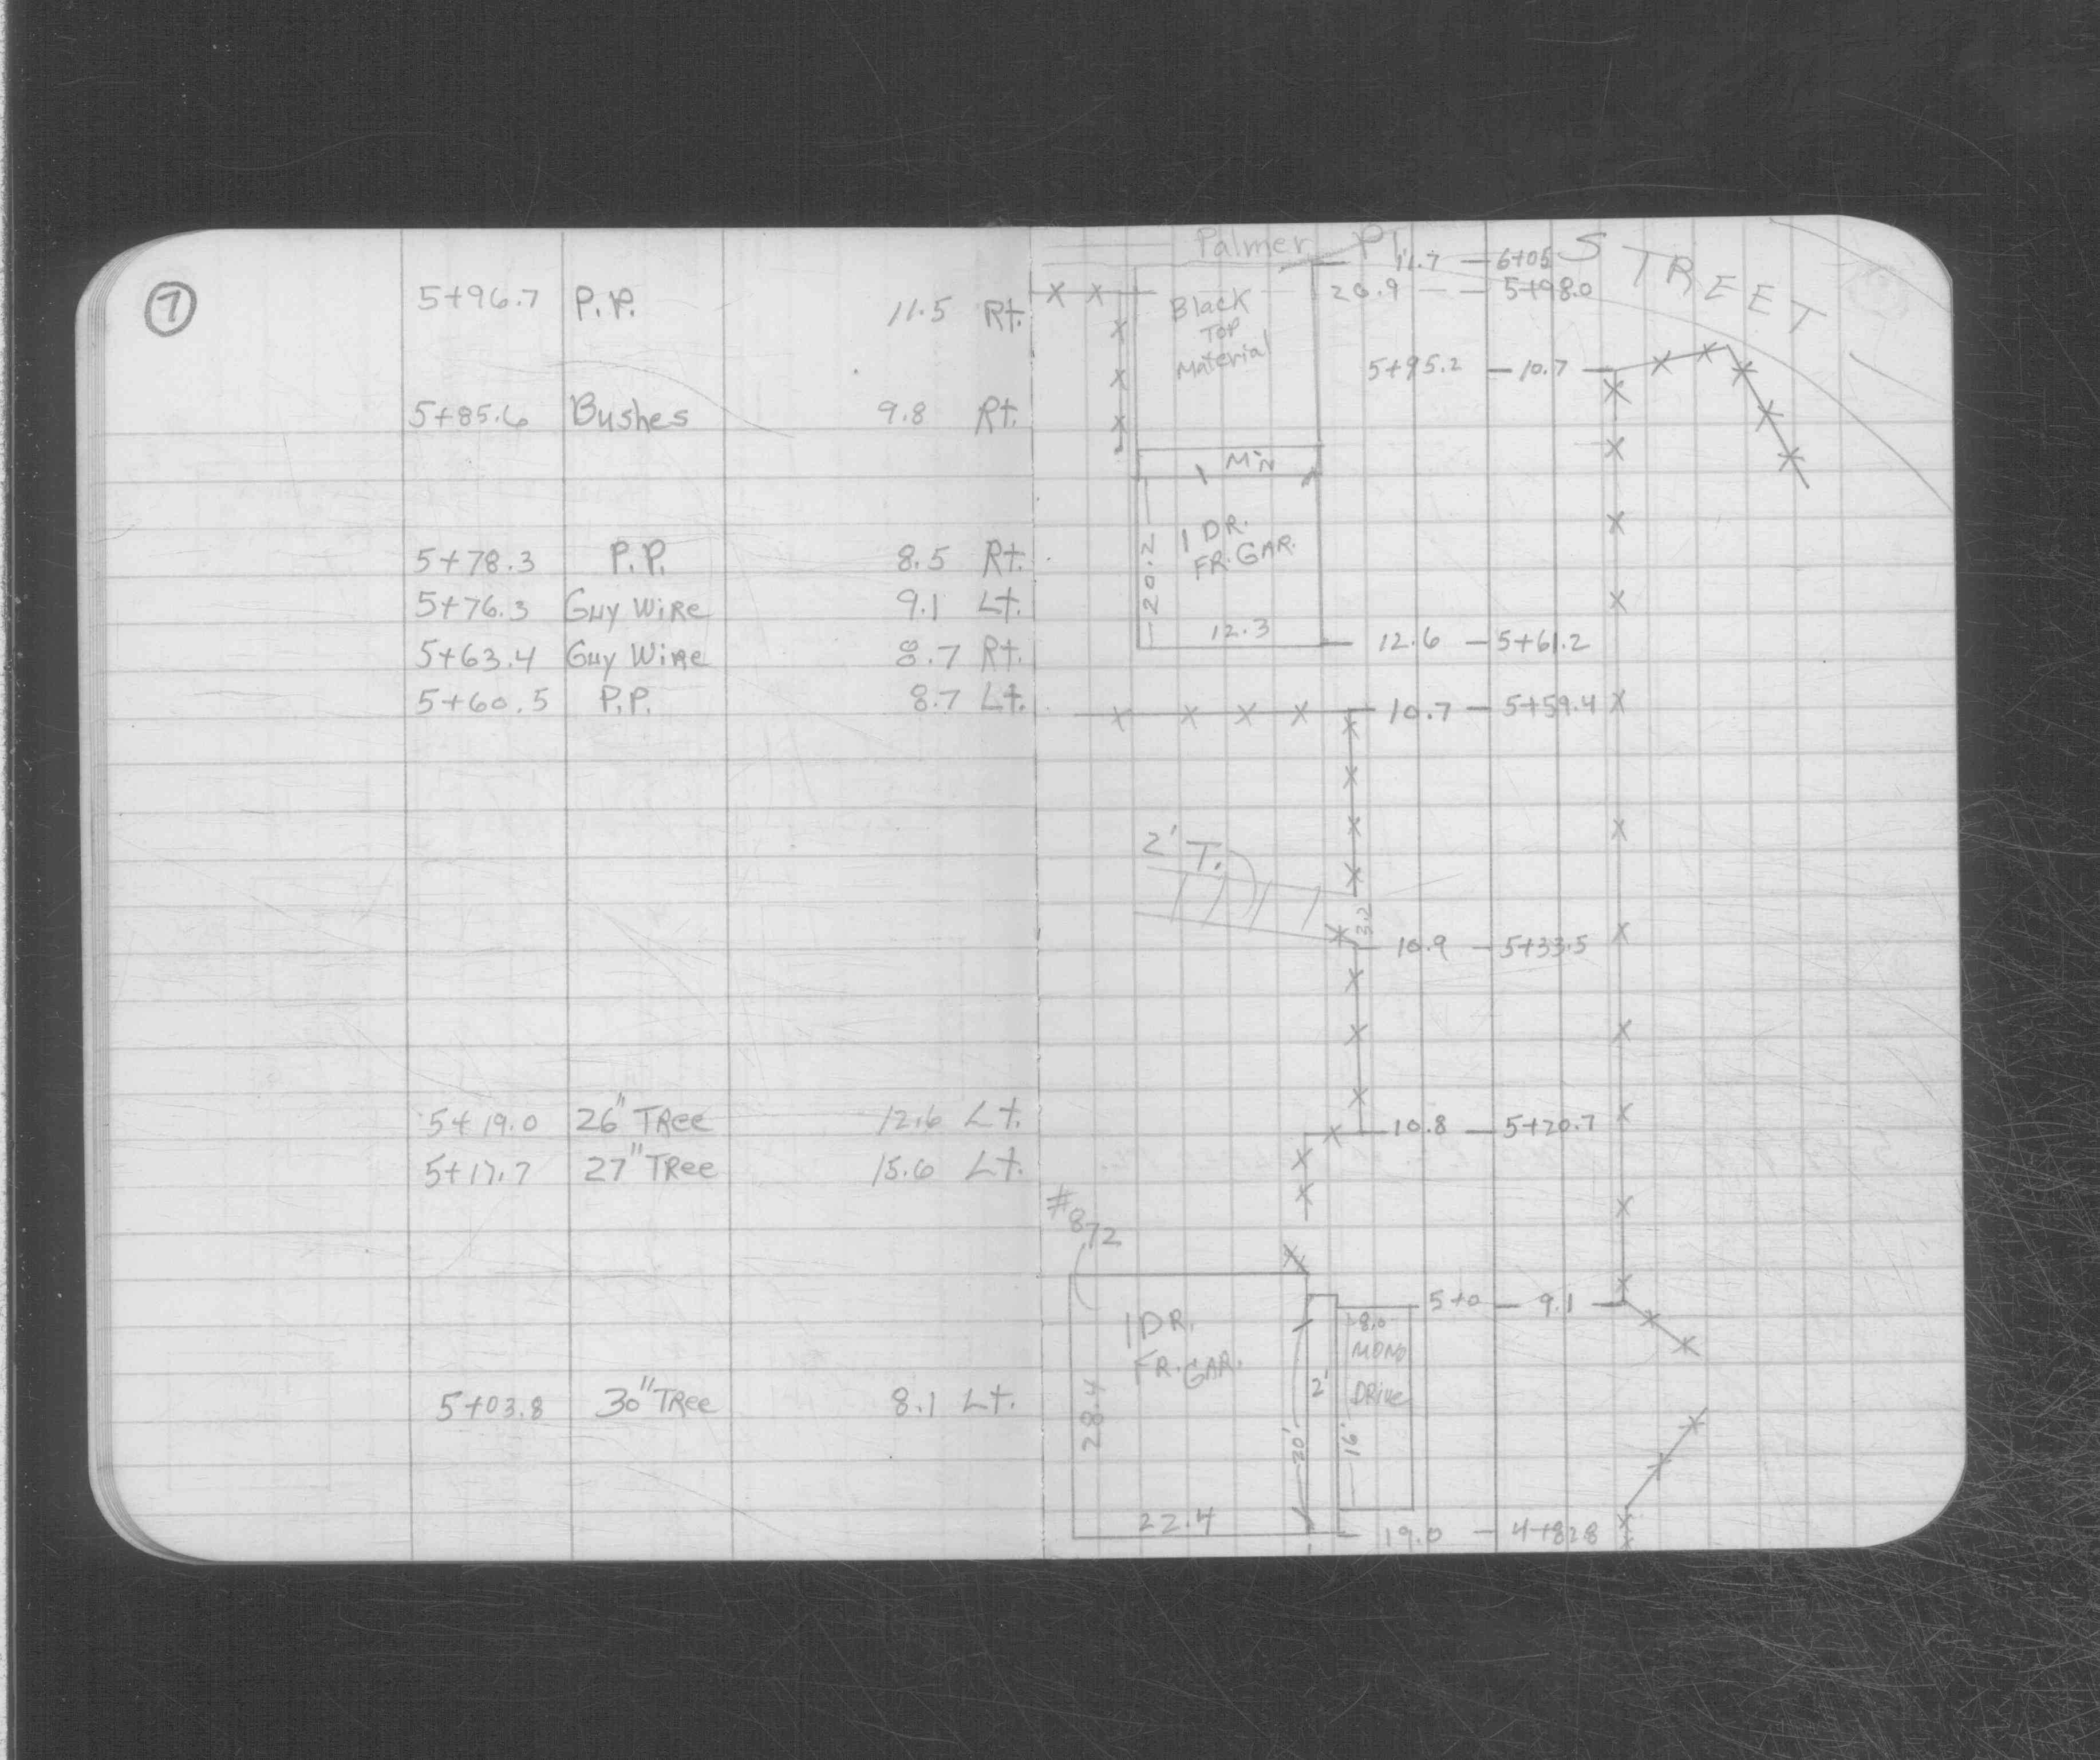 7
5+96.7 P.P. 11.5 Rt.
5+85.6 Bushes 9.8 Rt.
5+78.3 P.P. 8.5 Rt.
5+76.3 Guy Wire 9.1 Lt.
5+63.4 Guy Wire 8.7 Rt.
5+60.5 P.P. 8.7 Lt.
5+19.0 26" Tree 12.6 Lt.
5+17.7 27" Tree 15.6 Lt.
5+03.8 30" Tree 8.1 Lt.
Palmer Pl.
STREET
11.7 — 6+05
20.9 — 5+98.0
Black
Top
Material
5+95.2 — 10.7
1 DR.
FR. GAR.
20.2
12.3
12.6 — 5+61.2
10.7 — 5+59.4
2' T.
3.2
10.9 — 5+33.5
10.8 — 5+20.7
#872
5+0 — 9.1
1 DR.
FR. GAR.
8.0
MONO
DRive
28.4
20'
2'
16'
22.4
19.0 — 4+82.8